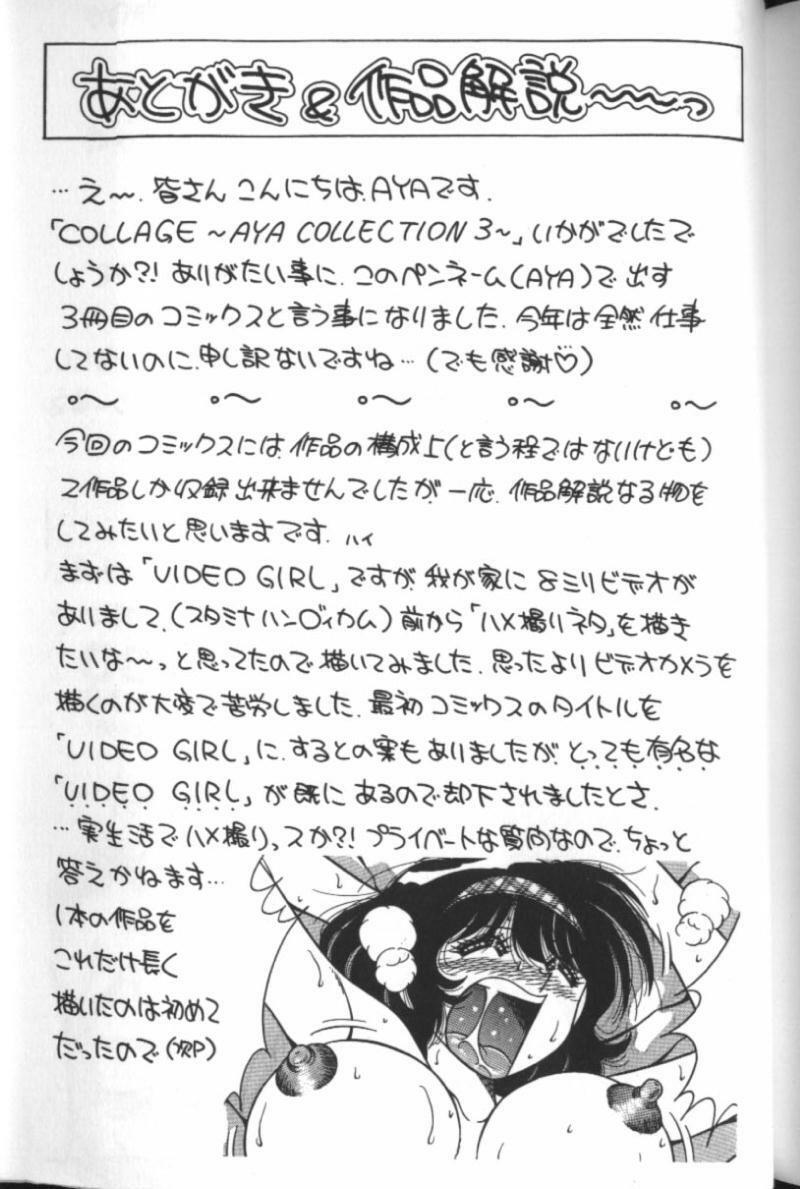 あとがき&作品解説〜〜〜っ
…え〜.皆さん こんにちは.AYAです.
「COLLAGE 〜AYA COLLECTION 3〜」いかがでしたで
しょうか?! ありがたい事に.このペンネーム(AYA)で出す
3冊目のコミックスと言う事になりました.今年は全然 仕事
してないのに.申し訳ないですね…(でも感謝♡)
今回のコミックスには.作品の構成上(と言う程ではないけども)
2作品しか収録出来ませんでしたが.一応.作品解説なる物を
してみたいと思いますです. ハイ
まずは「VIDEO GIRL」ですが.我が家に 8ミリビデオが
ありまして.(スタミナハン○ィカム)前から「ハメ撮りネタ」を描き
たいな〜〜っと思ってたので描いてみました.思ったよりビデオカメラを
描くのが大変で苦労しました.最初コミックスのタイトルを
「VIDEO GIRL」に.するとの案もありましたが.とっても有名な
「VIDEO GIRL」が既にあるので却下されましたとさ.
…実生活でハメ撮りっスか?! プライベートな質問なので.ちょっと
答えかねます…
1本の作品を
これだけ長く
描いたのは初めて
だったので(次P)